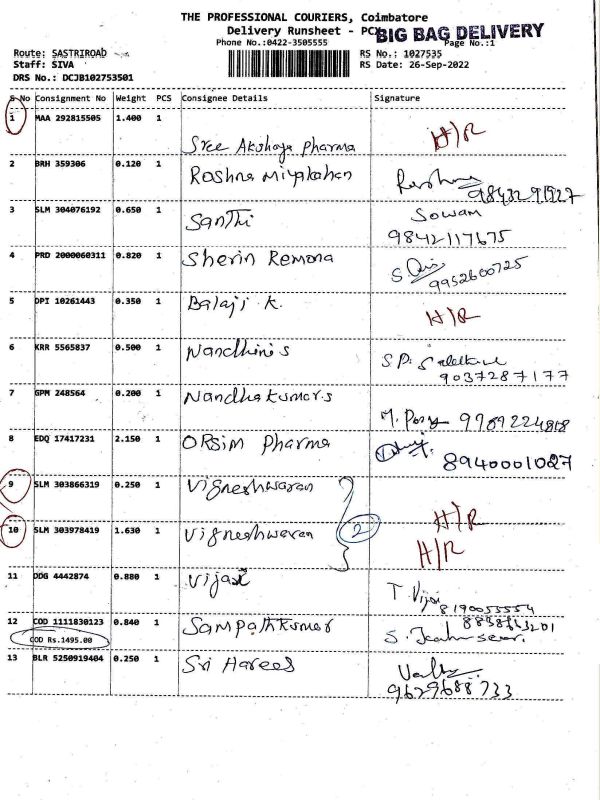 THE PROFESSIONAL COURIERS, Coimbatore
Delivery Runsheet - PCX BIG BAG DELIVERY
Phone No.:0422-3505555 Page No.:1
Route: SASTRIROAD RS No.: 1027535
Staff: SIVA RS Date: 26-Sep-2022
DRS No.: DCJB102753501
S No Consignment No Weight PCS Consignee Details Signature
1 MAA 292815505 1.400 1 Sree Akshaya Pharma H/R
2 BRH 359306 0.120 1 Roshna Miyalahan
3 SLM 304076192 0.650 1 Santhi Sowam
9842117675
4 PRD 2000060311 0.820 1 Sherin Remona
9952600725
5 DPI 10261443 0.350 1 Balaji K. H/R
6 KRR 5565837 0.500 1 Nandhini s
9037287177
7 GPM 248564 0.200 1 Nandhakumar.s
8 EDQ 17417231 2.150 1 ORSim Pharma
8940001027
9 SLM 303866319 0.250 1 Vigneshwaran H/R
2
10 SLM 303978419 1.630 1 Vigneshwaran H/R
11 DDG 4442874 0.880 1 Vijay T. Vijay
8190055554
12 COD 1111830123 0.840 1 Sampathkumar
COD Rs.1495.00
13 BLR 5250919404 0.250 1 Sri Harees
9629688733